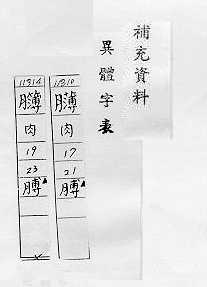 補充資料
異體字表
11310
肉
17
21
膊
11314
肉
19
23
膊